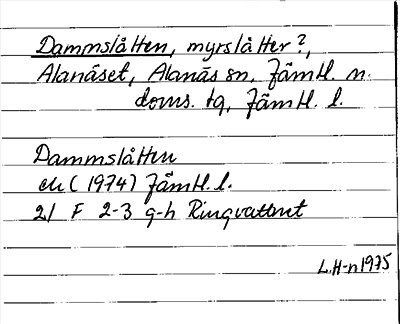 Dammslåtten, myrslåtter?,
Alanäset, Alanäs sn, Jämtl. n.
doms. tg, Jämtl. l.
Dammslåtten
ek (1974) Jämtl. l.
21 F 2-3 g-h Ringvattnet
L.H-n 1975